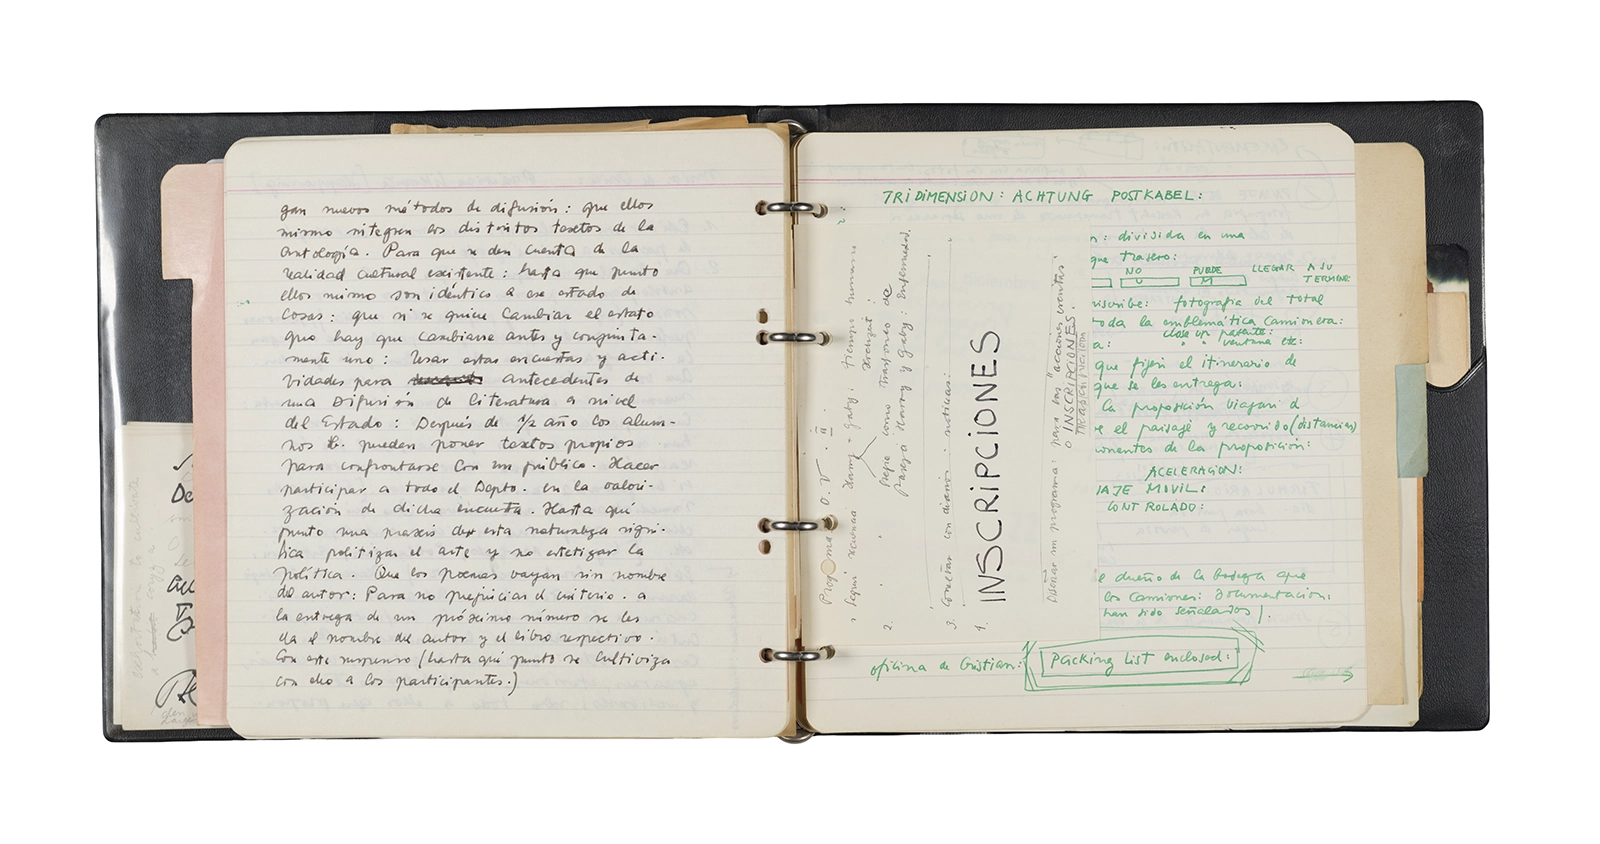 gan nuevos métodos de difusión: que ellos
mismo integren los distintos textos de la
Antología. Para que se den cuenta de la
realidad cultural existente: hasta que punto
ellos mismo son idéntico a ese estado de
cosas: que si se quiere cambiar el estato
que hay que cambiarse antes y conjunta-
mente uno: Usar estas encuestas y acti-
vidades para antecedentes de
una Difusión de literatura a nivel
del Estado: Después de 1/2 año los alum-
nos tb. pueden poner textos propios
para confrontarse con un público. Hacer
participar a todo el Depto. en la valori-
zación de dicha encuesta. Hasta qué
punto una praxis de esta naturaleza signi-
fica politizar el arte y no estetizar la
política. Que los poemas vayan sin nombre
de autor: Para no prejuiciar el criterio. a
la entrega de un próximo número se les
da el nombre del autor y el libro respectivo.
Con este suspenso (hasta qué punto se cultiviza
con eso a los participantes.)
TRIDIMENSION: ACHTUNG POSTKABEL:
: dividida en una
que trasero:
NO PUEDE LLEGAR A SU
U M TERMINE
inscribe: fotografía del total
toda la emblemática camionera:
clase un patente:
" " ventana etc:
que fijen el itinerario de
que se les entrega:
la proposición viajari d
e el paisaje y recorrido (distancias)
onentes de la proposición:
ACELERACION:
IAJE MOVIL:
CONTROLADO:
e dueño de la bodega que
los camiones: Documentacion,
han sido señalados).
oficina de Cristian: Packing List enclosed:
Programa O. V. II.
1 Seguir Harry + Gaby: tiempo
2. como trasfondo de
Pareja Harry y Gaby: Enfermedad.
3. Conectar con diario: noticias:
4. INSCRIPCIONES
Diseñar un programa: para las "acciones eventos"
o INSCRIPCIONES